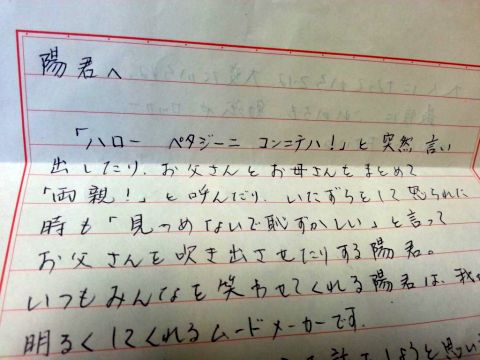 陽君へ
「ハロー ペタジーニ コンニチハ!」と突然言い
出したり、お父さんとお母さんをまとめて
「両親!」と呼んだり、いたずらをして怒られた
時も「見つめないで恥ずかしい」と言って
お父さんを吹き出させたりする陽君。
いつもみんなを笑わせてくれる陽君は、我が
明るくしてくれるムードメーカーです。